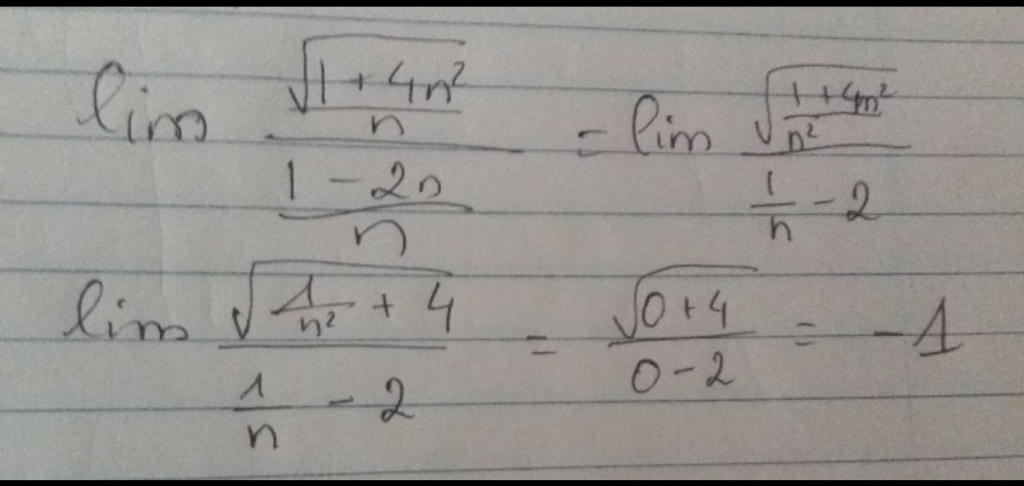 lim \frac{\frac{\sqrt{1+4n^2}}{n}}{\frac{1-2n}{n}} = lim \frac{\sqrt{\frac{1+4n^2}{n^2}}}{\frac{1}{n}-2}
lim \frac{\sqrt{\frac{1}{n^2}+4}}{\frac{1}{n}-2} = \frac{\sqrt{0+4}}{0-2} = -1